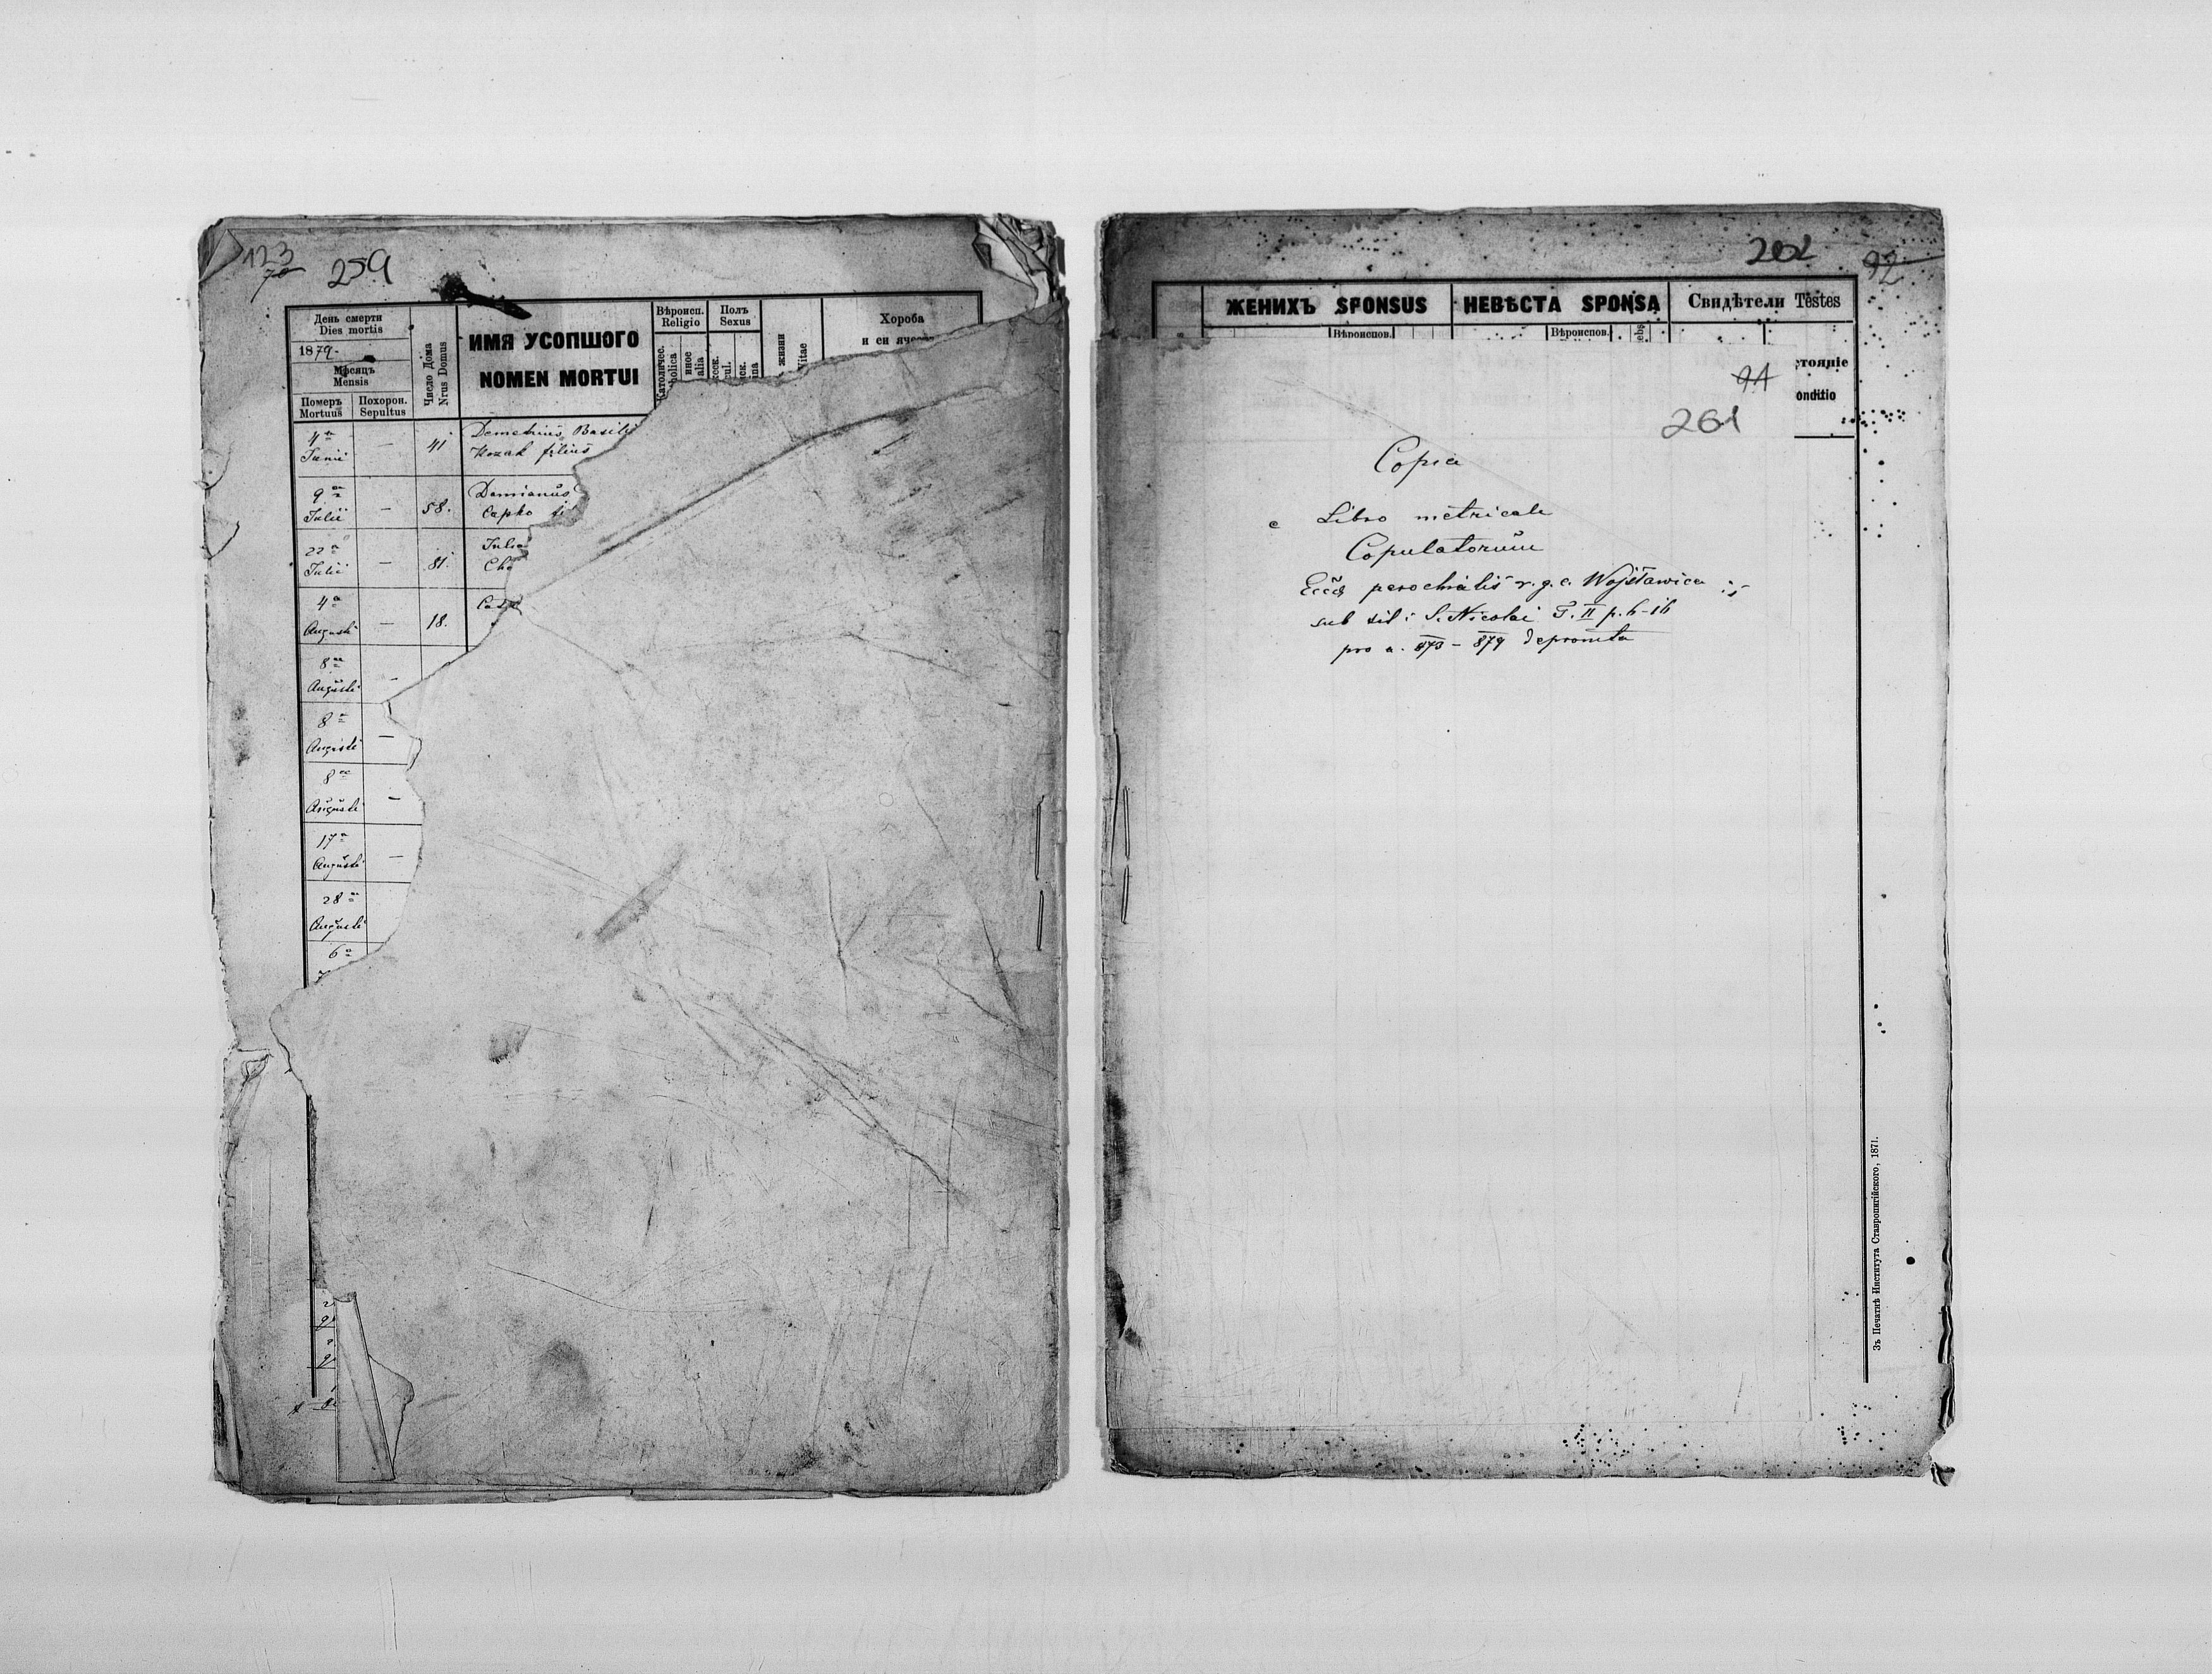 123
70
259
День смерти
Dies mortis
1879.
Мѣсяцъ
Mensis
Померъ
Mortuus
Похорон.
Sepultus
Число Дома
Nrus Domus
ИМЯ УСОПШОГО
NOMEN MORTUI
Вѣроисп.
Religio
Католичес.
иное
alia
Полъ
Sexus
жизни
Vitae
Хороба
4a Junii — 41 Demetrius Basilii
Kozak filius
9a Julii — 58. Damianus
Capko
22a Julii — 81.
4a Augusti — 18.
8a Augusti —
8a Augusti —
8a Augusti —
17a Augusti —
28a Augusti
6a
202
92
ЖЕНИХЪ SPONSUS
НЕВѢСТА SPONSA
Свидѣтели Testes
Вѣроиспов.
Вѣроиспов.
тояніе
onditio
91
261
Copia
e Libro metricali
Copulatorum
Eccl parochialis r. g. c. Wojsławice
sub tit: S. Nicolai T. II p. 6-16
pro a. 873 - 879 depromta
Зъ Печатнѣ Института Ставропигійского, 1871.